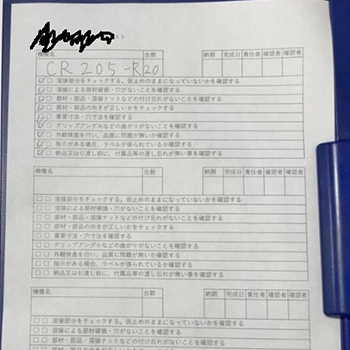 スト
機種名 台数 納期 完成日 責任者 確認者 確認者
CR 205-R20
溶接部分をチェックする。仮止めのままになっていないかを確認する
溶接による部材破損・穴がないことを確認する
部材・部品・溶接ナットなどの付け忘れがないことを確認する
部材・部品の向きが正しいかを確認する
重要寸法・穴寸法を確認する
グリップアングルなどの曲がりがないことを確認する
外観検査を行い、品質に問題が無いか確認する
指示がある場合、ラベルが張られているかを確認する
納品又は引渡し前に、付属品等の渡し忘れが無い事を確認する
機種名 台数 納期 完成日 責任者 確認者 確認者
溶接部分をチェックする。仮止めのままになっていないかを確認する
溶接による部材破損・穴がないことを確認する
部材・部品・溶接ナットなどの付け忘れがないことを確認する
部材・部品の向きが正しいかを確認する
重要寸法・穴寸法を確認する
グリップアングルなどの曲がりがないことを確認する
外観検査を行い、品質に問題が無いか確認する
指示がある場合、ラベルが張られているかを確認する
納品又は引渡し前に、付属品等の渡し忘れが無い事を確認する
機種名 台数 納期 完成日 責任者 確認者 確認者
溶接部分をチェックする。仮止めのままになっていないかを確認する
溶接による部材破損・穴がないことを確認する
部材・部品・溶接ナットなどの付け忘れがないことを確認する
部材・部品の向きが正しいかを確認する